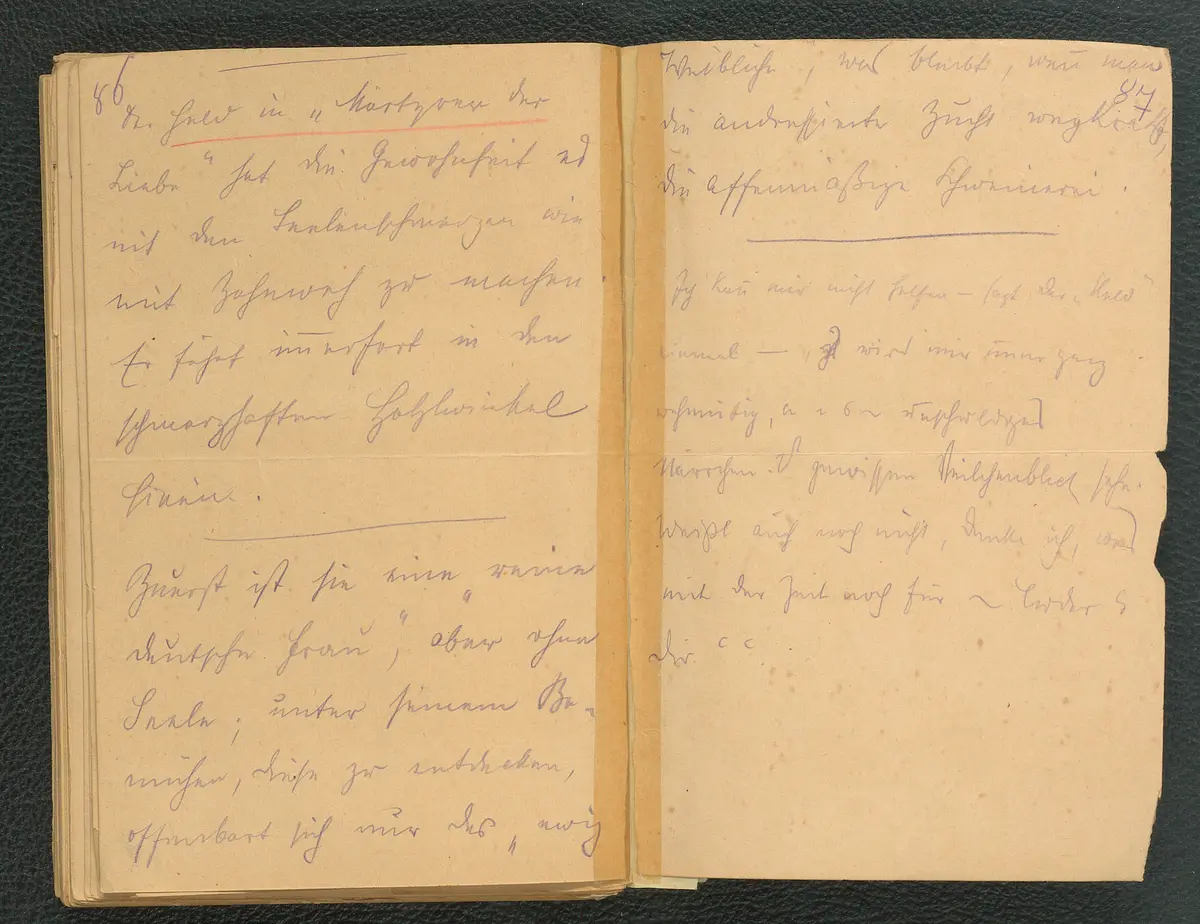 86
Der Held in „Märtyrer der
Liebe“ hat die Gewohnheit es
mit den Seelenschmerzen wie
mit Zahnweh zu machen.
Er fährt immerfort in den
schmerzhaften
hinein.
Zuerst ist sie eine „reine
deutsche Frau“, aber ohne
Seele; unter seinem Be-
mühen, diese zu entdecken,
offenbart sich nur das „ewig
87
Weibliche“, was bleibt, wenn man
die andressierte Zucht wegkratzt,
die affenmäßige Schweinerei.
Ich kann mir nicht helfen – sagt der „Held“
einmal – wird mir immer ganz
wehmütig, unschuldiges
Närrchen gewissen Veilchenblick sehe.
Weißt auch noch nicht, denke ich, was
mit der Zeit noch für
Dir.“